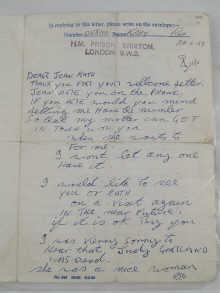 In replying to this letter, please write on the envelope:
Number Name
H.M. PRISON, BRIXTON,
LONDON S.W.2.
DEAR JEAN KATH
THANK YOU FOR YOUR welcome letter.
JEAN KATE you on the PHONE.
IF you KATE would you mind
letting me Have the number
so that my mother can GET
IN Touch with you
when she wants to
For me.
I wont let any one
have it
I would like to see
you or KATH
on a visit again
IN THE near Future.
if it is ok by you
I was very sorry to
hear that Judy GARLAND
WAS dead.
she was a nice woman